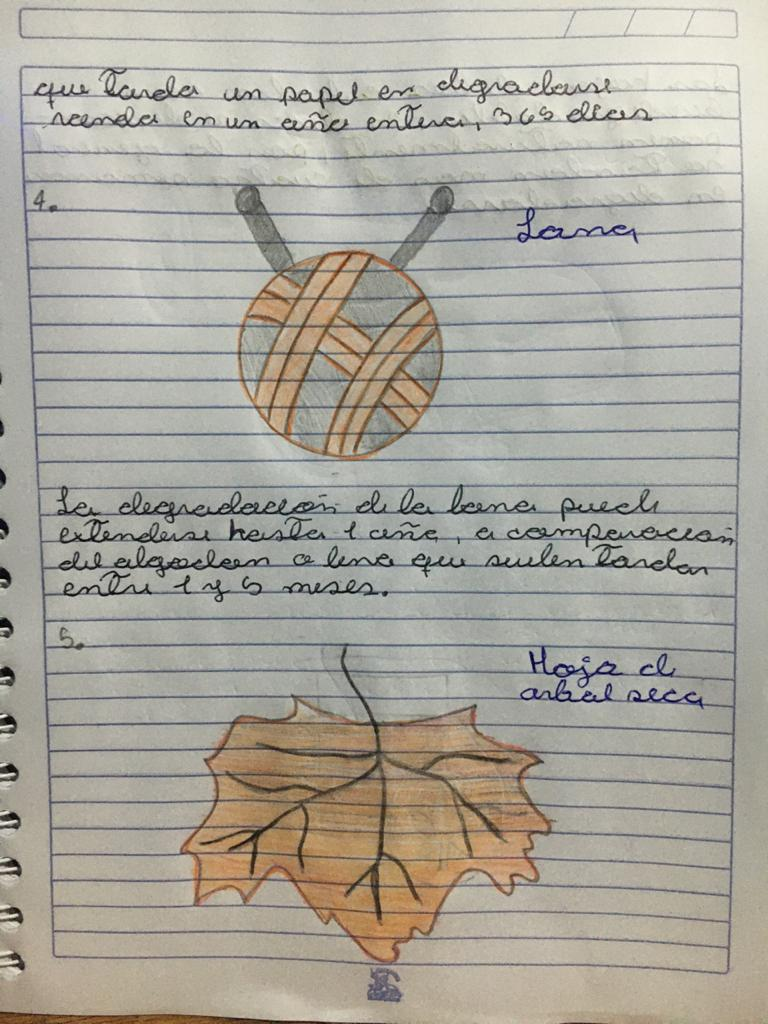 que tarda un papel en degradarse
ronda en un año entero, 365 dias
4.
Lana
La degradación de la lana puede
extenderse hasta 1 año, a comparación
del algodon o lino que suelen tardar
entre 1 y 5 meses.
5.
Hoja de
arbol seca